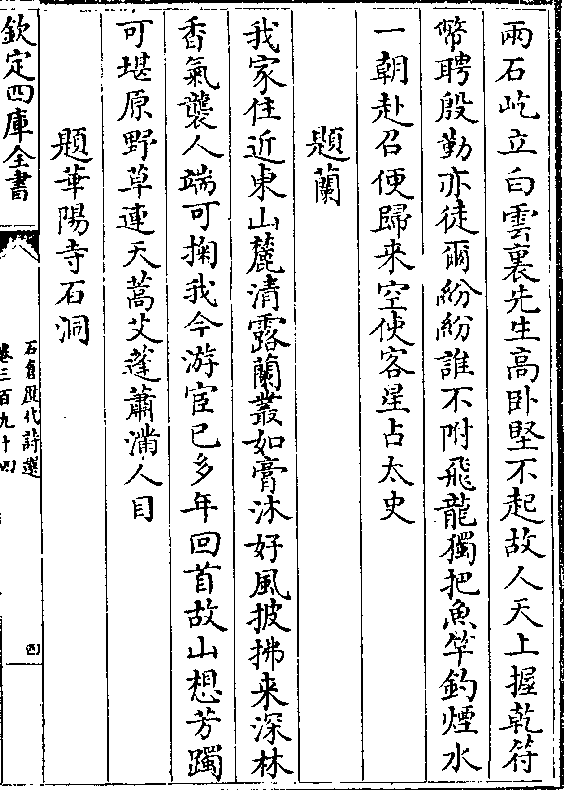 兩石屹立白雲裏先生高卧堅不起故人天上握乾符
幣聘殷勤亦徒爾紛紛誰不附飛龍獨把魚竿釣煙水
一朝赴召便歸来空使客星占太史
題蘭
我家住近東山麓清露蘭叢如膏沐好風披拂来深林
香氣襲人端可掬我今游宦已多年回首故山想芳躅
可堪原野草連天蒿艾蓬蕭滿人目
題華陽寺石洞
欽定四庫全書
石倉歷代詩選
卷三百九十四
四